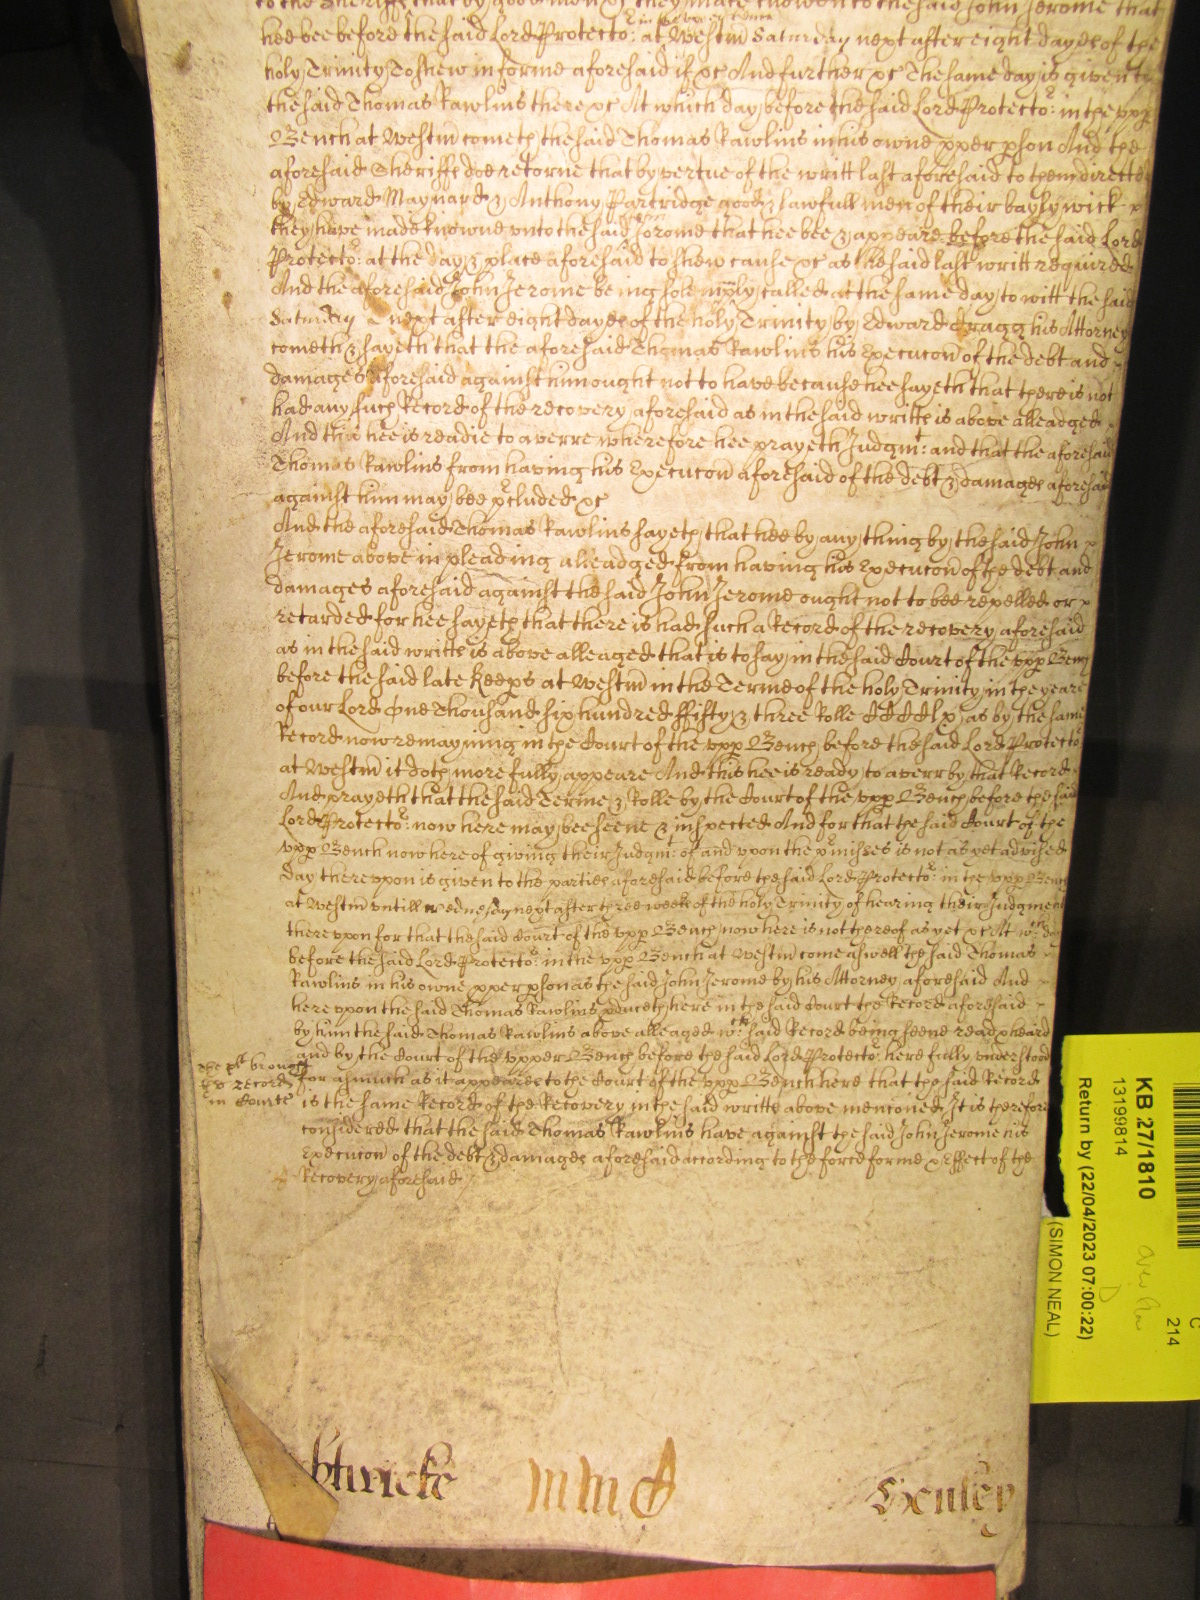 to the Sheriffs that by good men &c they make knowen to the said John Jerome that
hee bee before the said Lord Protector: at Westm Saturday next after eight dayes of the
holy Trinity To shew in forme aforesaid if &c And further &c The same day is given to
the said Thomas Rawlins there &c At which day before the said Lord Protector: in the upp
Bench at Westm cometh the said Thomas Rawlins in his owne pper pson And the
aforesaid Sheriffs doe retorne that by vertue of the writt last aforesaid to them directed
by Edward Maynard & Anthony Partridge good & lawfull men of their baylywick
they have made knowne unto the said Jerome that hee bee & appeare before the said Lord
Protector: at the day & place aforesaid to shew cause &c as the said last writt required
And the aforesaid John Jerome being solemply called at the same day to witt the said
Saturday next after eight dayes of the holy Trinity by Edward Fragg his Attorney
cometh & sayeth that the aforesaid Thomas Rawlins his Execucon of the debt and
damages aforesaid against him ought not to have because hee sayeth that there is not
had any such Record of the recovery aforesaid as in the said writts is above alleadged
And this hee is readie to averre wherefore hee prayeth Judgmt: and that the aforesaid
Thomas Rawlins from having his Execucon aforesaid of the debt & damages aforesaid
against him may bee pcluded &c
And the aforesaid Thomas Rawlins sayeth that hee by any thing by the said John
Jerome above in pleading alleadged from having his Execucon of the debt and
damages aforesaid against the said John Jerome ought not to bee repelled or
retarded for hee sayeth that there is had such a Record of the recovery aforesaid
as in the said writts is above alleaged that is to say in the said Court of the upp Bench
before the said late Keeps at Westm in the Terme of the holy Trinity in the yeare
of our Lord One Thousand six hundred ffifty & three Rolle CCCClx as by the same
Record now remayning in the Court of the upp Bench before the said Lord Protector
at Westm it doth more fully appeare And this hee is ready to averr by that Record
And prayeth that the said Terme & Rolle by the Court of the upp Bench before the said
Lord Protector: now here may bee seene & inspected And for that the said Court of the
upp Bench now here of giving their Judgmt: of and upon the pmisses is not as yet advised
day thereupon is given to the parties aforesaid before the said Lord Protector: in the upp Bench
at Westm untill Wednesday next after three weeks of the holy Trinity of hearing their Judgment
thereupon for that the said Court of the upp Bench now here is not thereof as yet &c At wch day
before the said Lord Protector: in the upp Bench at Westm come aswell the said Thomas
Rawlins in his owne pper pson as the said John Jerome by his Attorney aforesaid And
hereupon the said Thomas Rawlins pduceth here in the said Court the Record aforesaid
by him the said Thomas Rawlins above alleaged wch: said Record being seene read & heard
and by the Court of the upper Bench before the said Lord Protector: here fully understood
The plt brought
for asmuch as it appeares to the Court of the upp Bench here that the said Record
record
is the same Record of the Recovery in the said writts above menconed It is therefore
in Courte
considered that the said Thomas Rawlins have against the said John Jerome his
Execucon of the debt & damages aforesaid according to the force forme & effect of the
Recovery aforesaid
Henley
KB 27/1810
13199814
Return by (22/04/2023 07:00:22)
(SIMON NEAL)
C
214